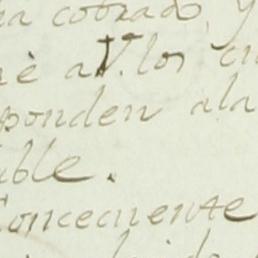 ha cobrado, y
nè a V. los cu
sponden ala
ible.
Concecuente